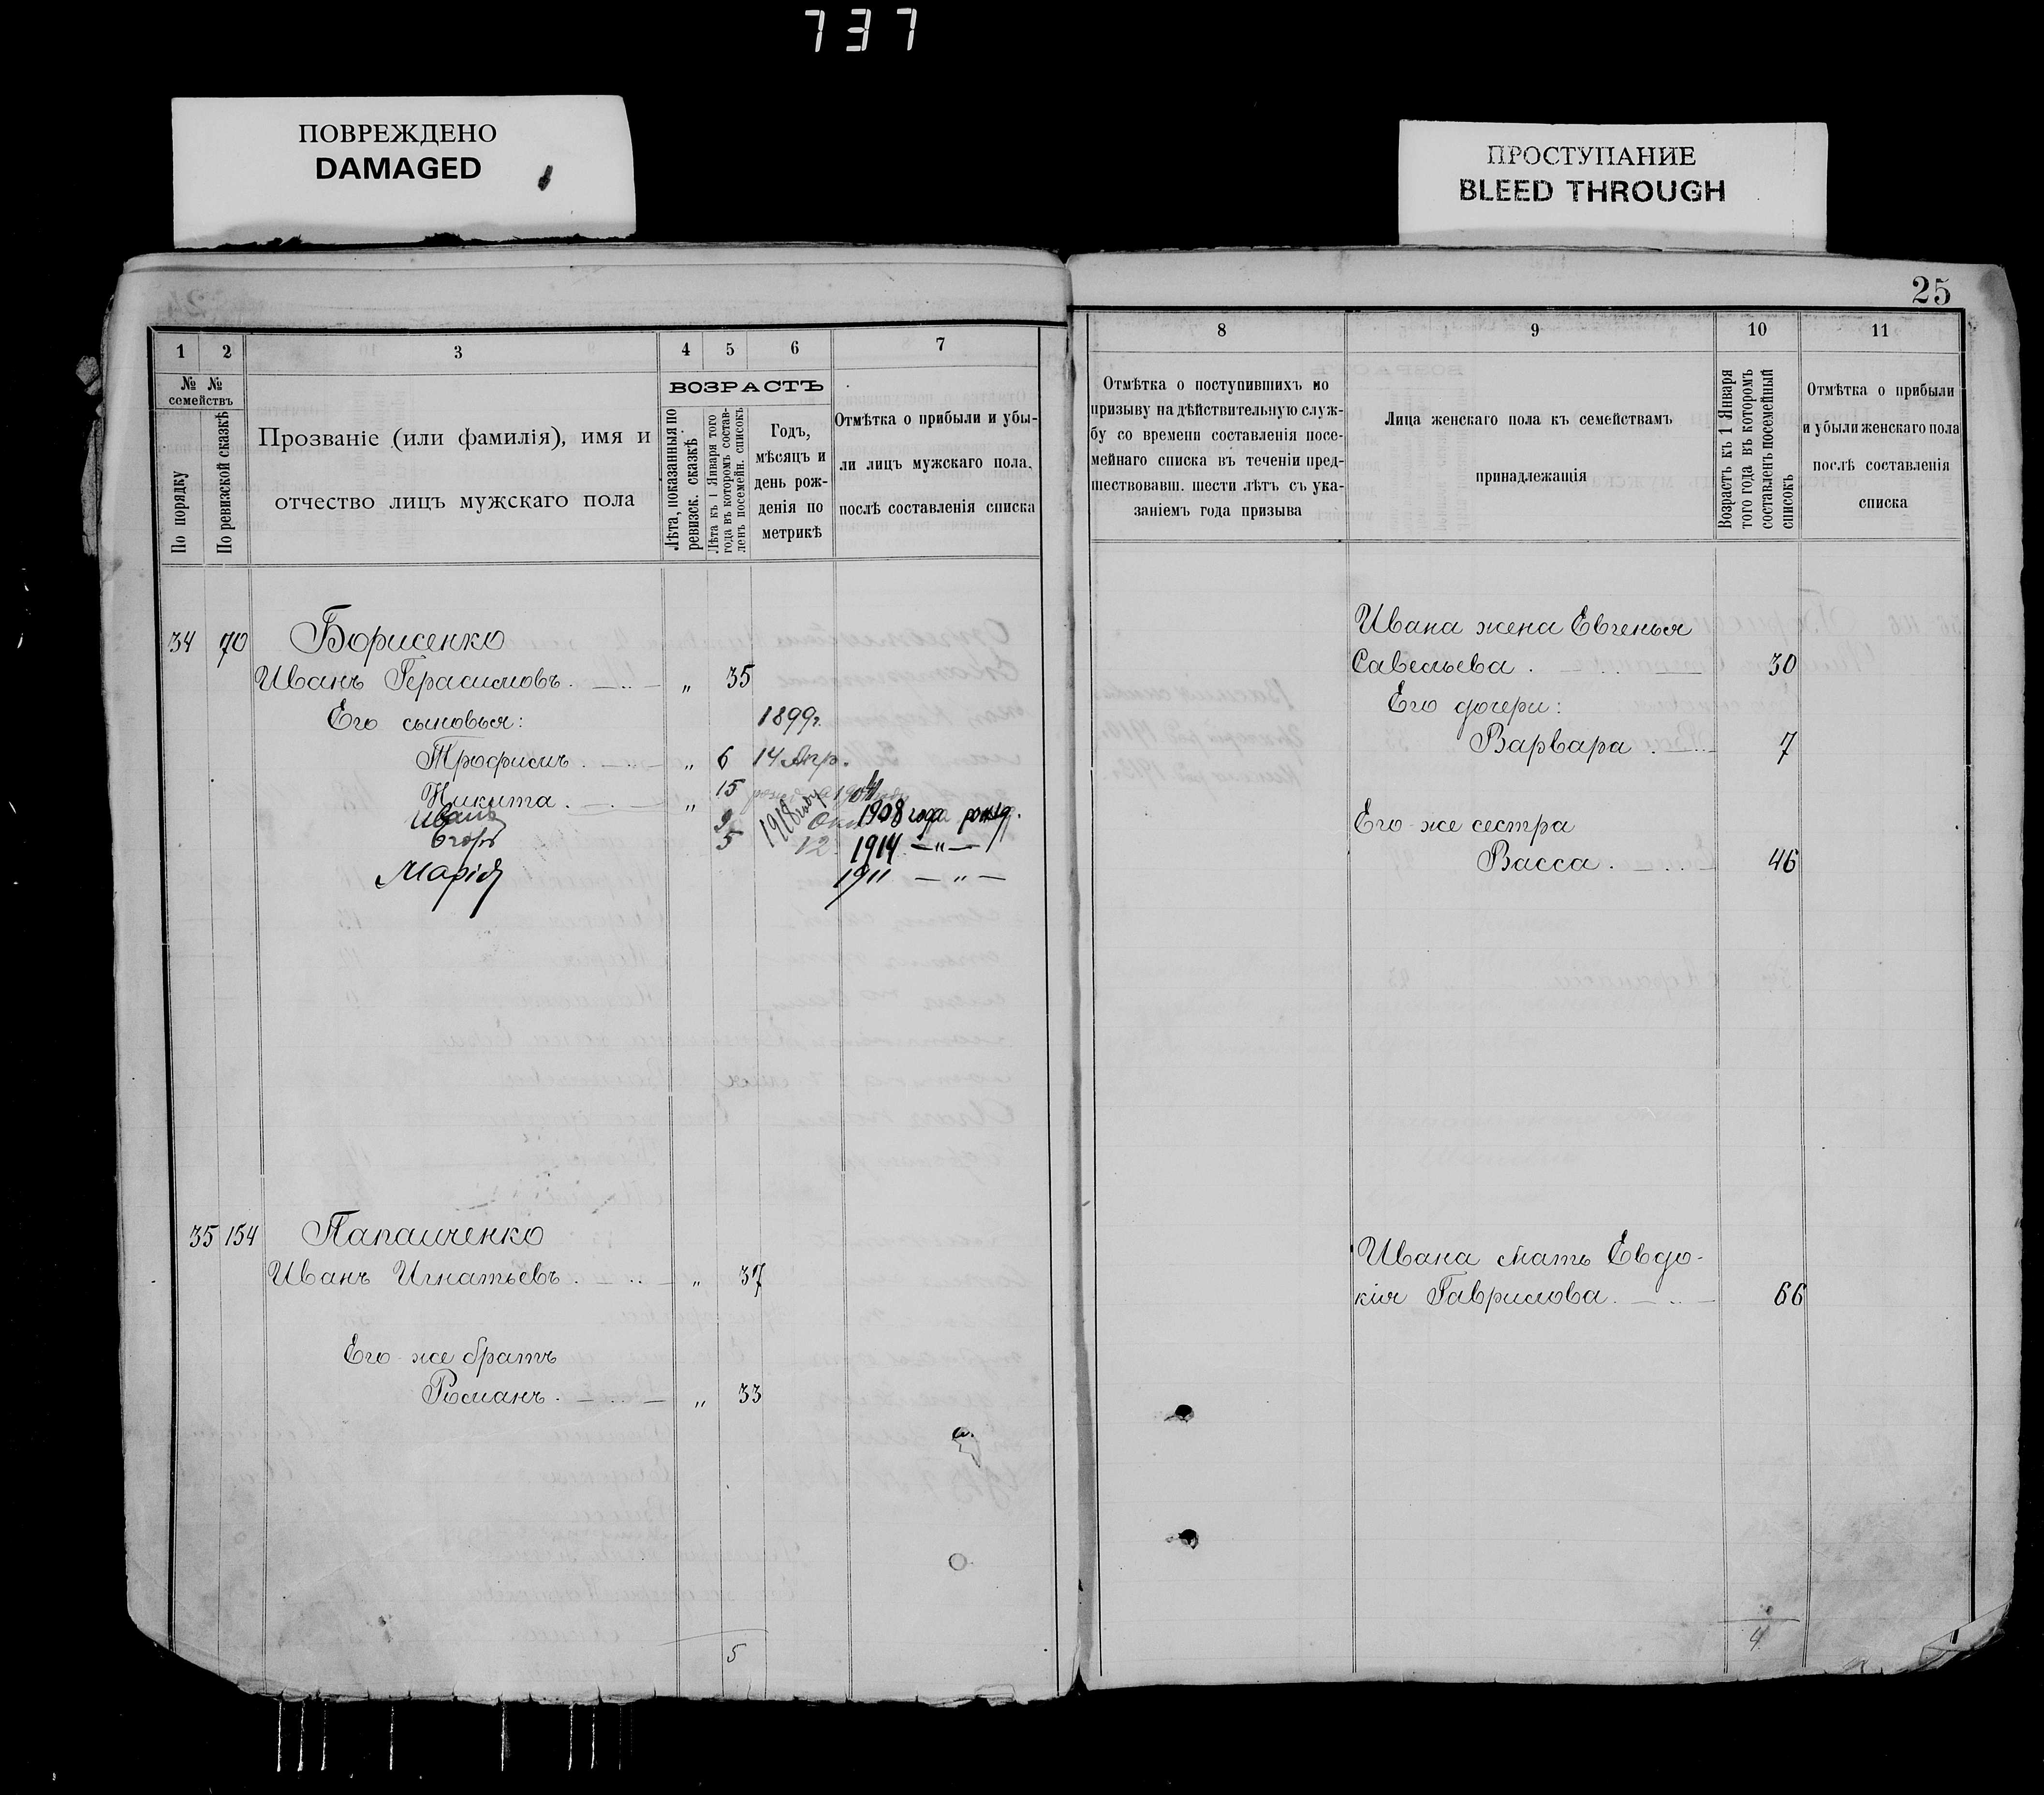 737
ПОВРЕЖДЕНО
DAMAGED
ПРОСТУПАНИЕ
BLEED THROUGH
25
1 2 3 4 5 6 7
№ № семействъ
По порядку
По ревизской сказкѣ
Прозваніе (или фамилія), имя и
отчество лицъ мужскаго пола
ВОЗРАСТЪ
Лѣта, показанныя по
ревизск. сказкѣ
Лѣта къ 1 Января того
года въ которомъ состав-
ленъ посемейн. списокъ
Годъ,
мѣсяцъ и
день рож-
денія по
метрикѣ
Отмѣтка о прибыли и убы-
ли лицъ мужскаго пола,
послѣ составленія списка
34 70 Борисенко
Иванъ Герасимовъ. „ 35
Его сыновья: 1899г.
Трофимъ. „ 6 14 Апр.
Никита. „ 15 1904
Иванъ 9 1908 года рожд.
Егоръ 5 12 1914 —„—
1918 году
Марія 1911 —„—
35 154 Папаиченко
Иванъ Игнатьевъ. „ 37
Его-же братъ
Романъ. „ 33
5
8 9 10 11
Отмѣтка о поступившихъ по
призыву на дѣйствительную служ-
бу со времени составленія посе-
мейнаго списка въ теченіи пред-
шествовавш. шести лѣтъ съ ука-
заніемъ года призыва
Лица женскаго пола къ семействамъ
принадлежащія
Возрастъ къ 1 Января
того года въ которомъ
составленъ посемейный
списокъ
Отмѣтка о прибыли
и убыли женскаго пола
послѣ составленія
списка
Ивана жена Евгенья
Савельева. 30
Его дочери:
Варвара. 7
Его-же сестра
Васса. 46
Ивана мать Евдо-
кія Гаврилова. 66
4